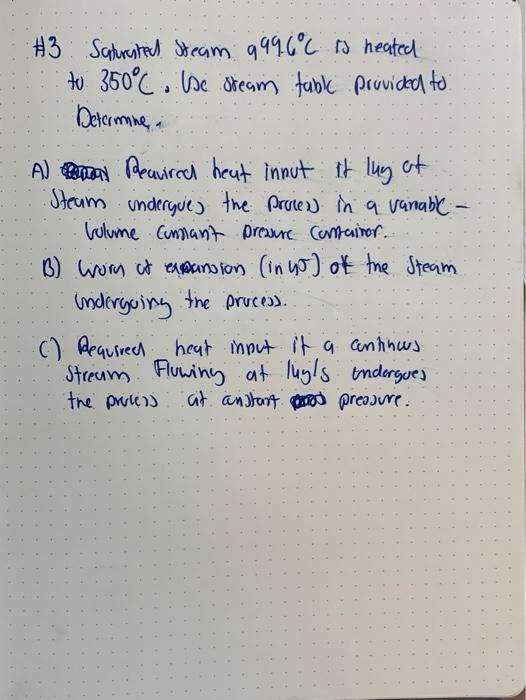 #3 Saturated Steam @ 99.6°C is heated
to 350°C. Use steam table provided to
Determine.
A) Required heat input if 1kg of
Steam undergoes the process in a variable -
Volume Constant pressure container.
B) Work of expansion (in kJ) of the steam
Undergoing the process.
C) Required heat input if a continuos
Stream Flowing at 1kg/s undergoes
the process at constant pressure.